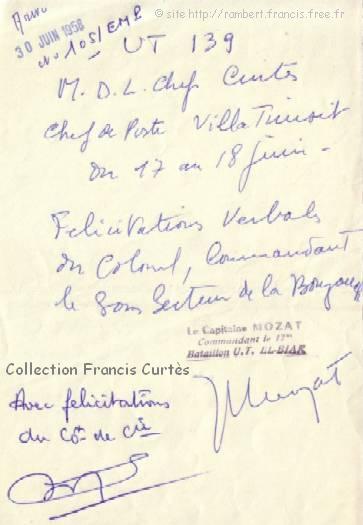 © site http://rambert.francis.free.fr
30 JUIN 1958
N° 105/EMP
UT 139
M.D.L. Chef Curtès
Chef de Poste Villa
du 17 au 18 Juin -
Felicitations Verbales
du Colonel, Commandant
le Sous Secteur de la Bouzareah
Le Capitaine MOZAT
Commandant le 17me
Bataillon U.T. EL-BIAR
Collection Francis Curtès
Mozat
Avec felicitations
du Cdt de Cie